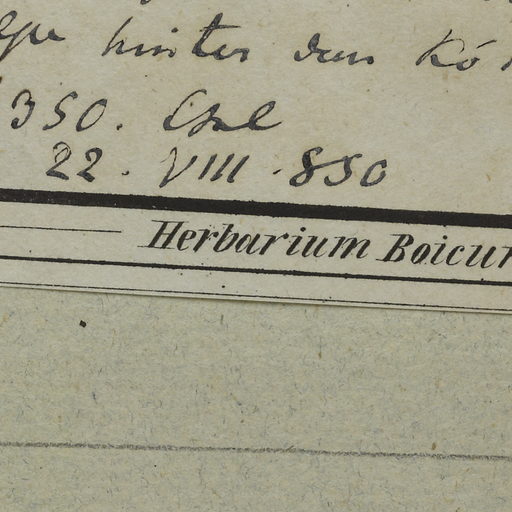 hinter dem Kö
350.
22. VIII. 850
Herbarium Boicum